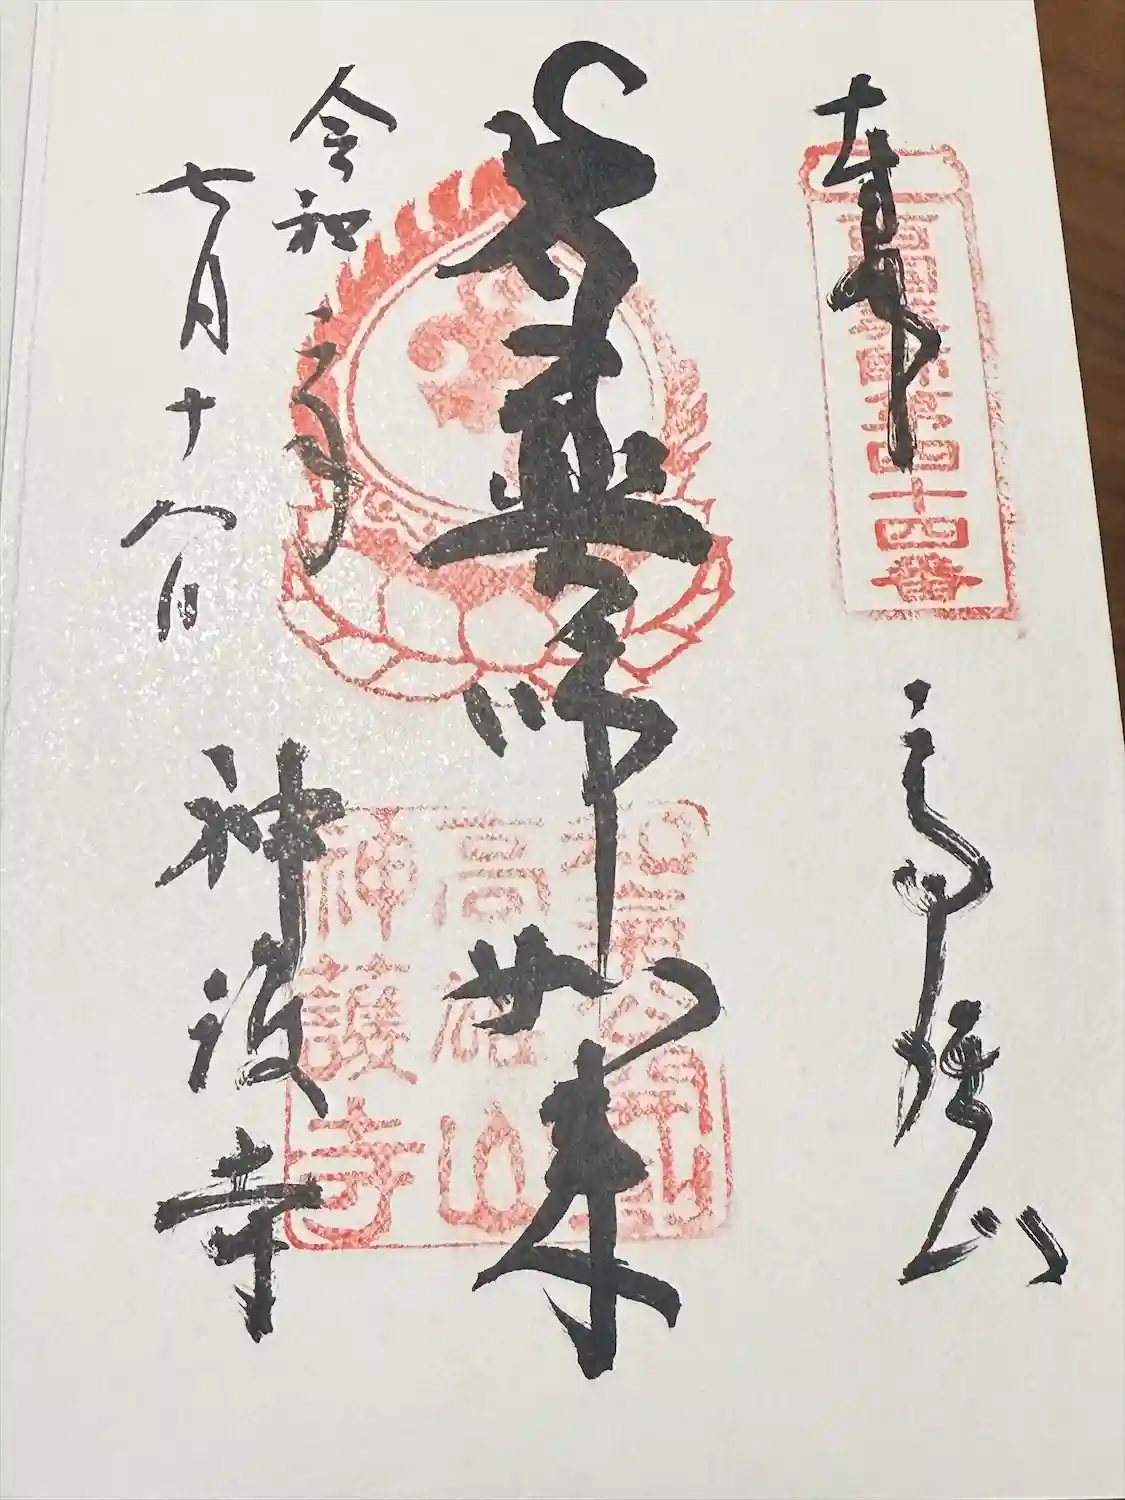 奉拝
西国薬師第四十四番
高雄山
薬師如来
高雄山
神護寺
令和
七月十八日
神護寺